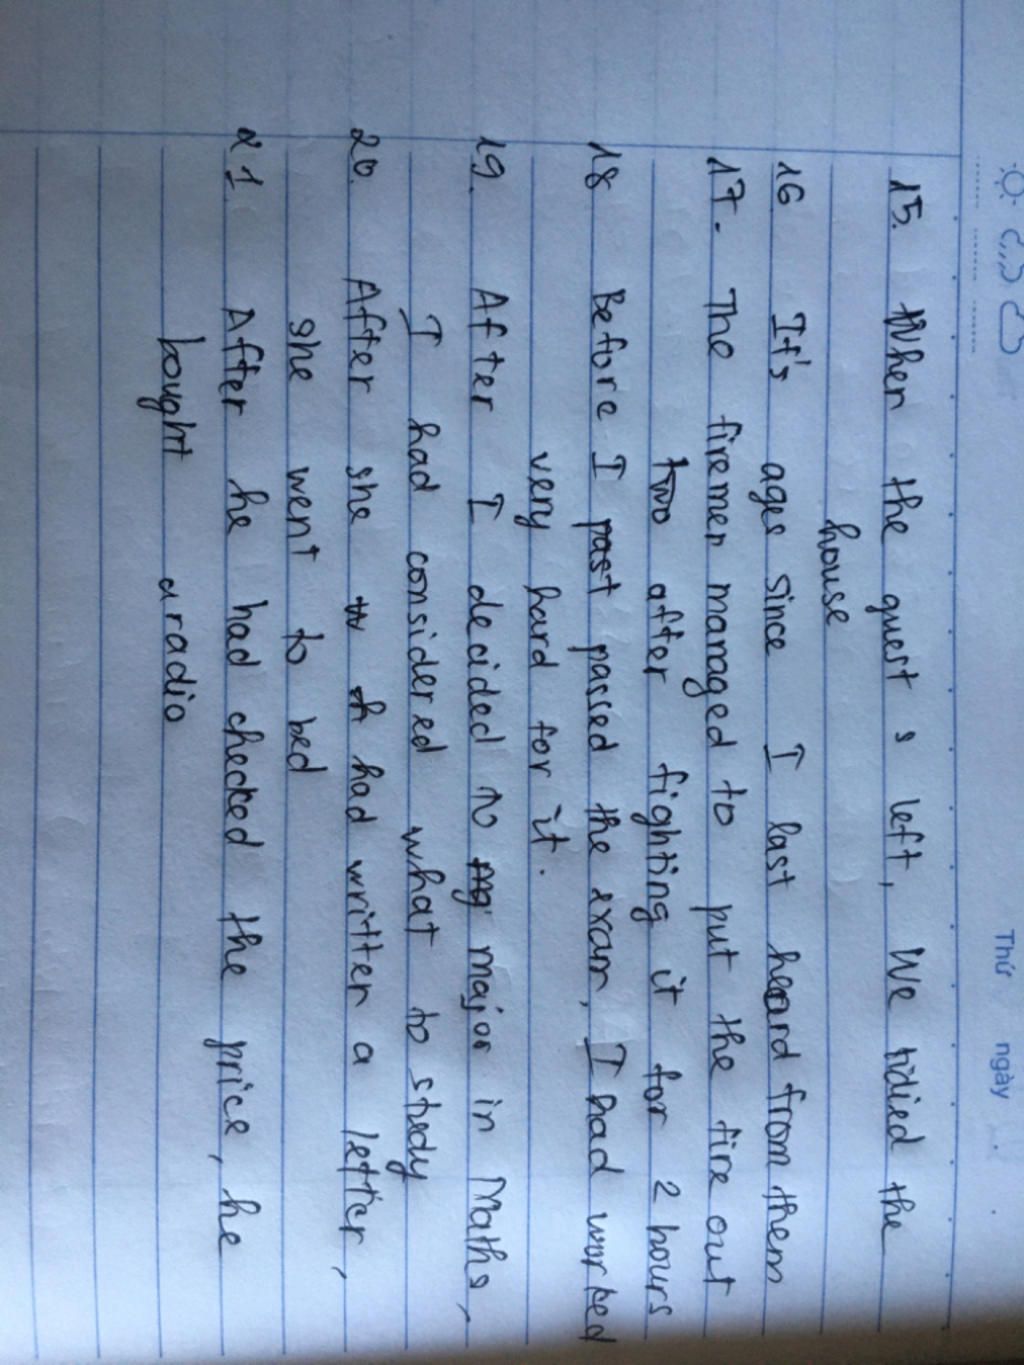 Thứ ngày
15. When the guest s left, We tidied the
house
16 It's ages since I last heard from them
17. The firemen managed to put the fire out
two after fighting it for 2 hours
18 Before I past passed the exam, I had worked
very hard for it.
19. After I decided to major in Maths,
I had considered what to study
20. After she had written a letter,
she went to bed
21. After he had checked the price, he
bought a radio